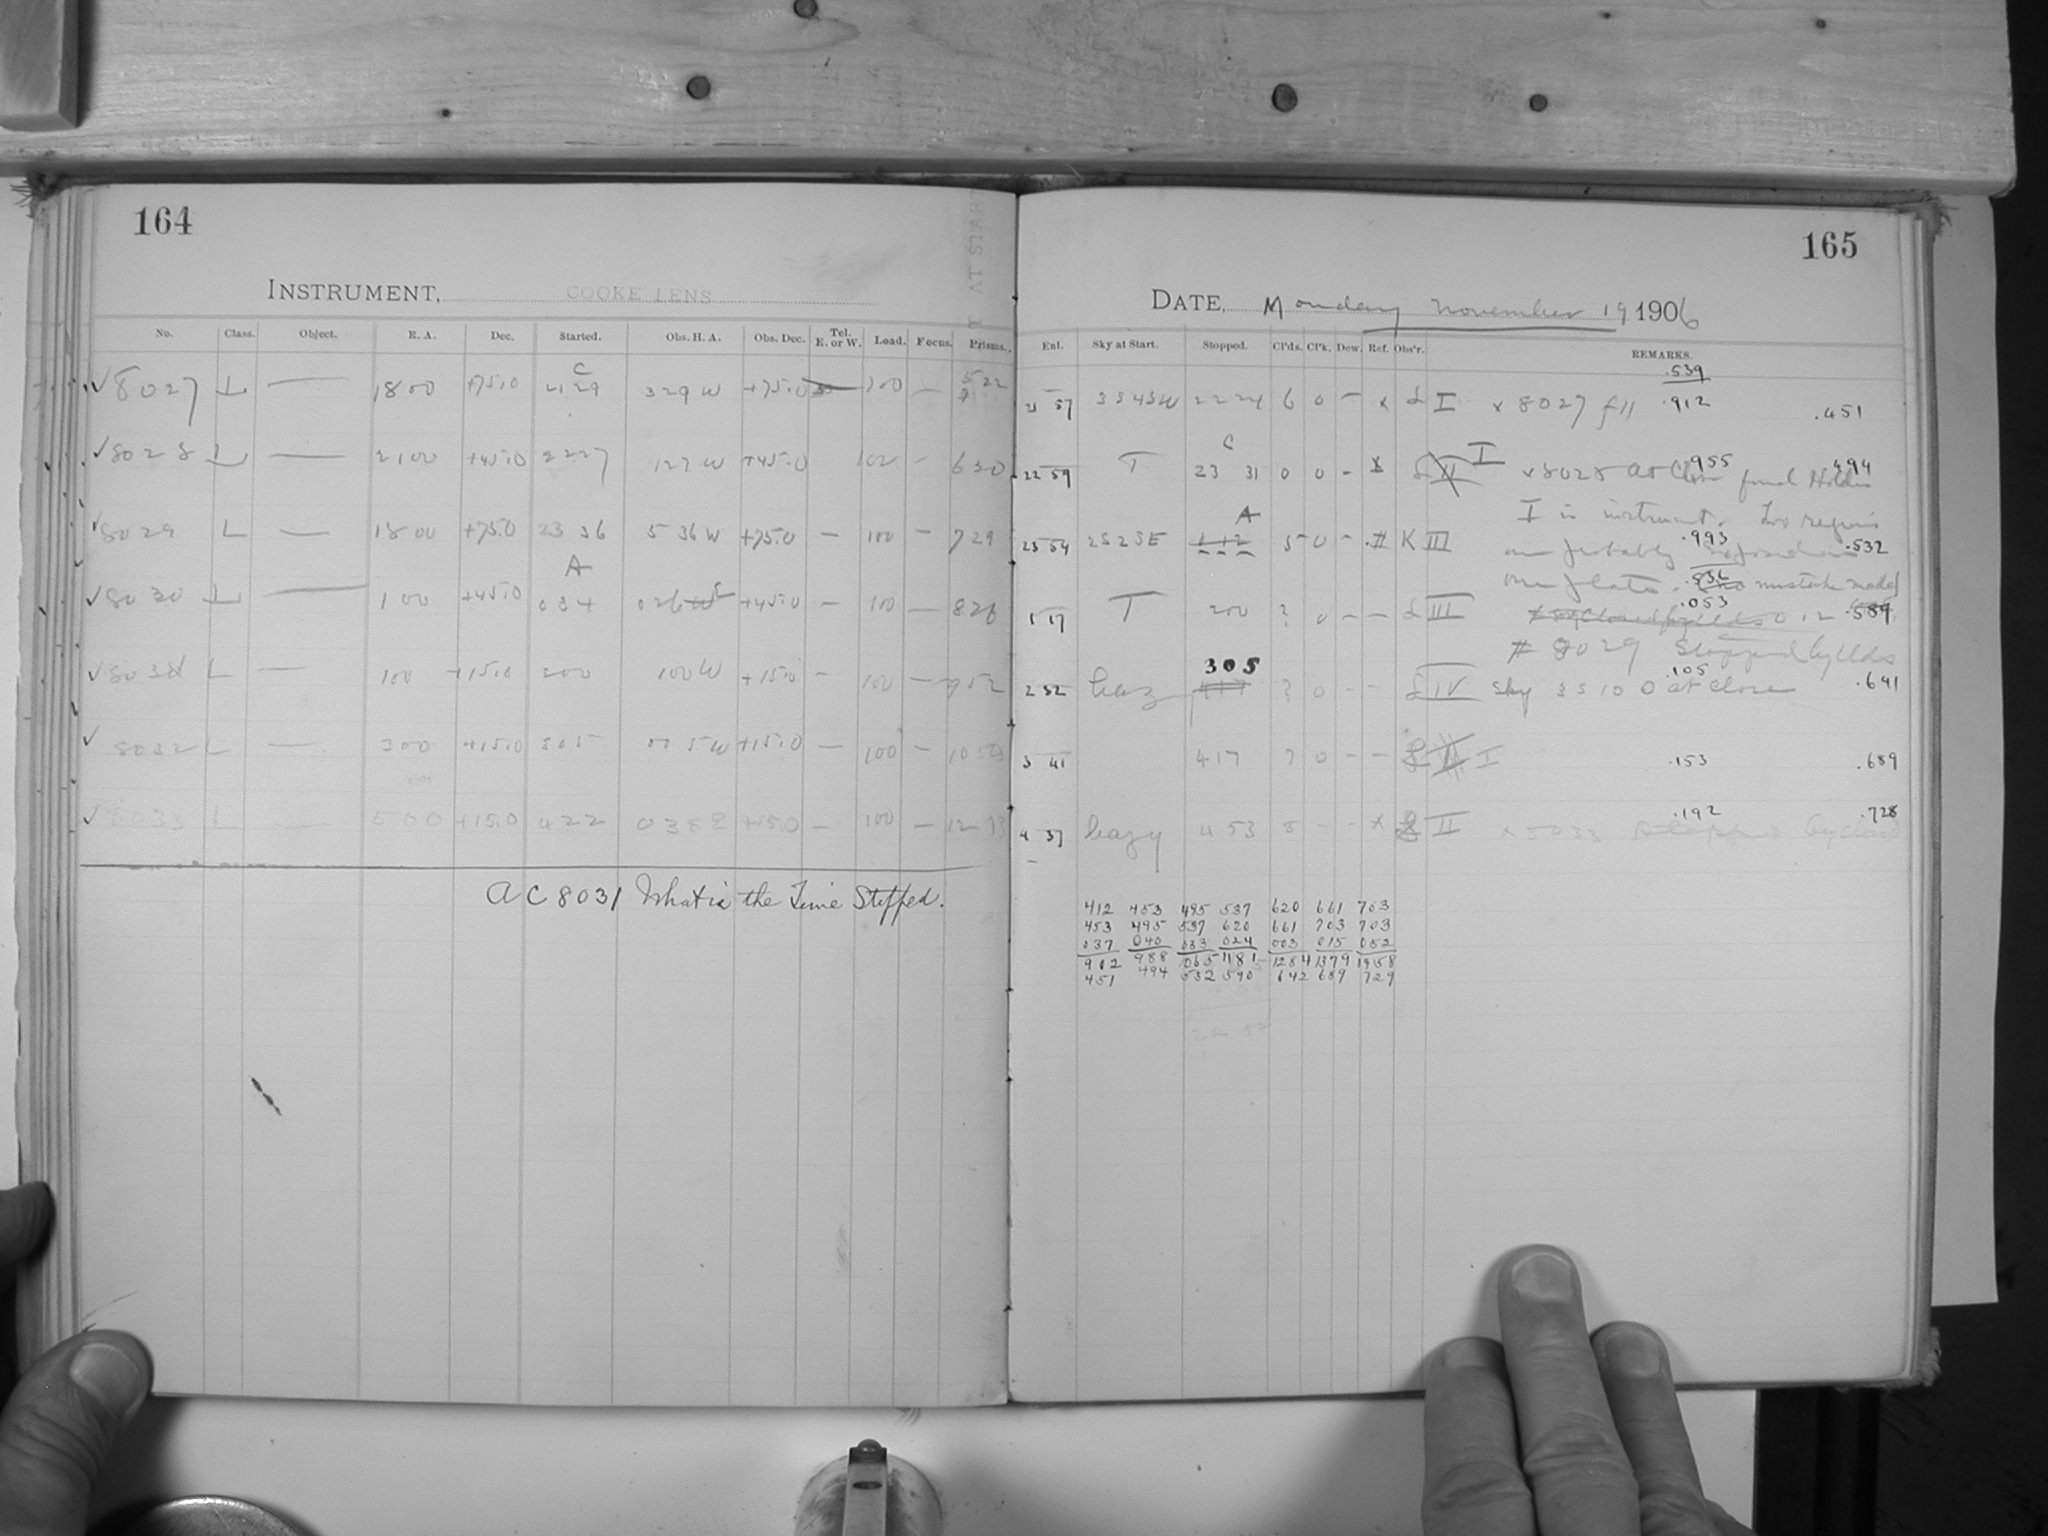 164
INSTRUMENT, COOKE LENS
No. Class. Object. R. A. Dec. Started. Obs. H. A. Obs. Dec. Tel. E. or W. Load. Focus. Prisms.
C
✓8027 L — 1800 +75.0 2129 329 W +75.0 — 100 — 522
✓8028 L — 2100 +45.0 2227 127 W +45.0 100 — 630
✓8029 L — 1800 +75.0 23 36 5 36 W +75.0 — 100 — 729
A
✓8030 L — 100 +45.0 034 026 E +45.0 — 100 — 826
✓8031 L — 100 +15.0 200 100 W +15.0 — 100 — 952
✓8032 L — 300 +15.0 305 00 5 W +15.0 — 100 — 10
✓8033 L — 500 +15.0 422 038 E +15.0 — 100 — 12
AC 8031 What is the Time Stopped.
165
DATE, Monday November 19 1906
Ent. Sky at Start. Stopped. Cl'ds. Cl'k. Dew. Ref. Obs'r. REMARKS.
.539
21 57 3545W 2224 6 0 — x L I x 8027 f11 .912 .451
C I
22 59 T 23 31 0 0 — x L II x 8028 at Close found Holder .955 .494
I in instrument. Two regions
A
23 54 2525E 112 5 0 — # K III are probably on .993 .532
one plate. mistake made
.536
.053
1 17 T 200 ? 0 — — L III .589
# 8029 Stopped by Clds
305
.105
2 32 hazy 417 ? 0 — — L IV Sky 3510 0 at close .641
3 41 417 ? 0 — — L I .153 .689
4 37 hazy 453 8 — — x L II x 8033 Stopped by cloud .192 .728
412 453 495 537 620 661 703
453 495 537 620 661 703 703
037 040 033 024 003 015 052
902 988 1065 1181 1284 1379 1458
451 494 532 590 642 689 729